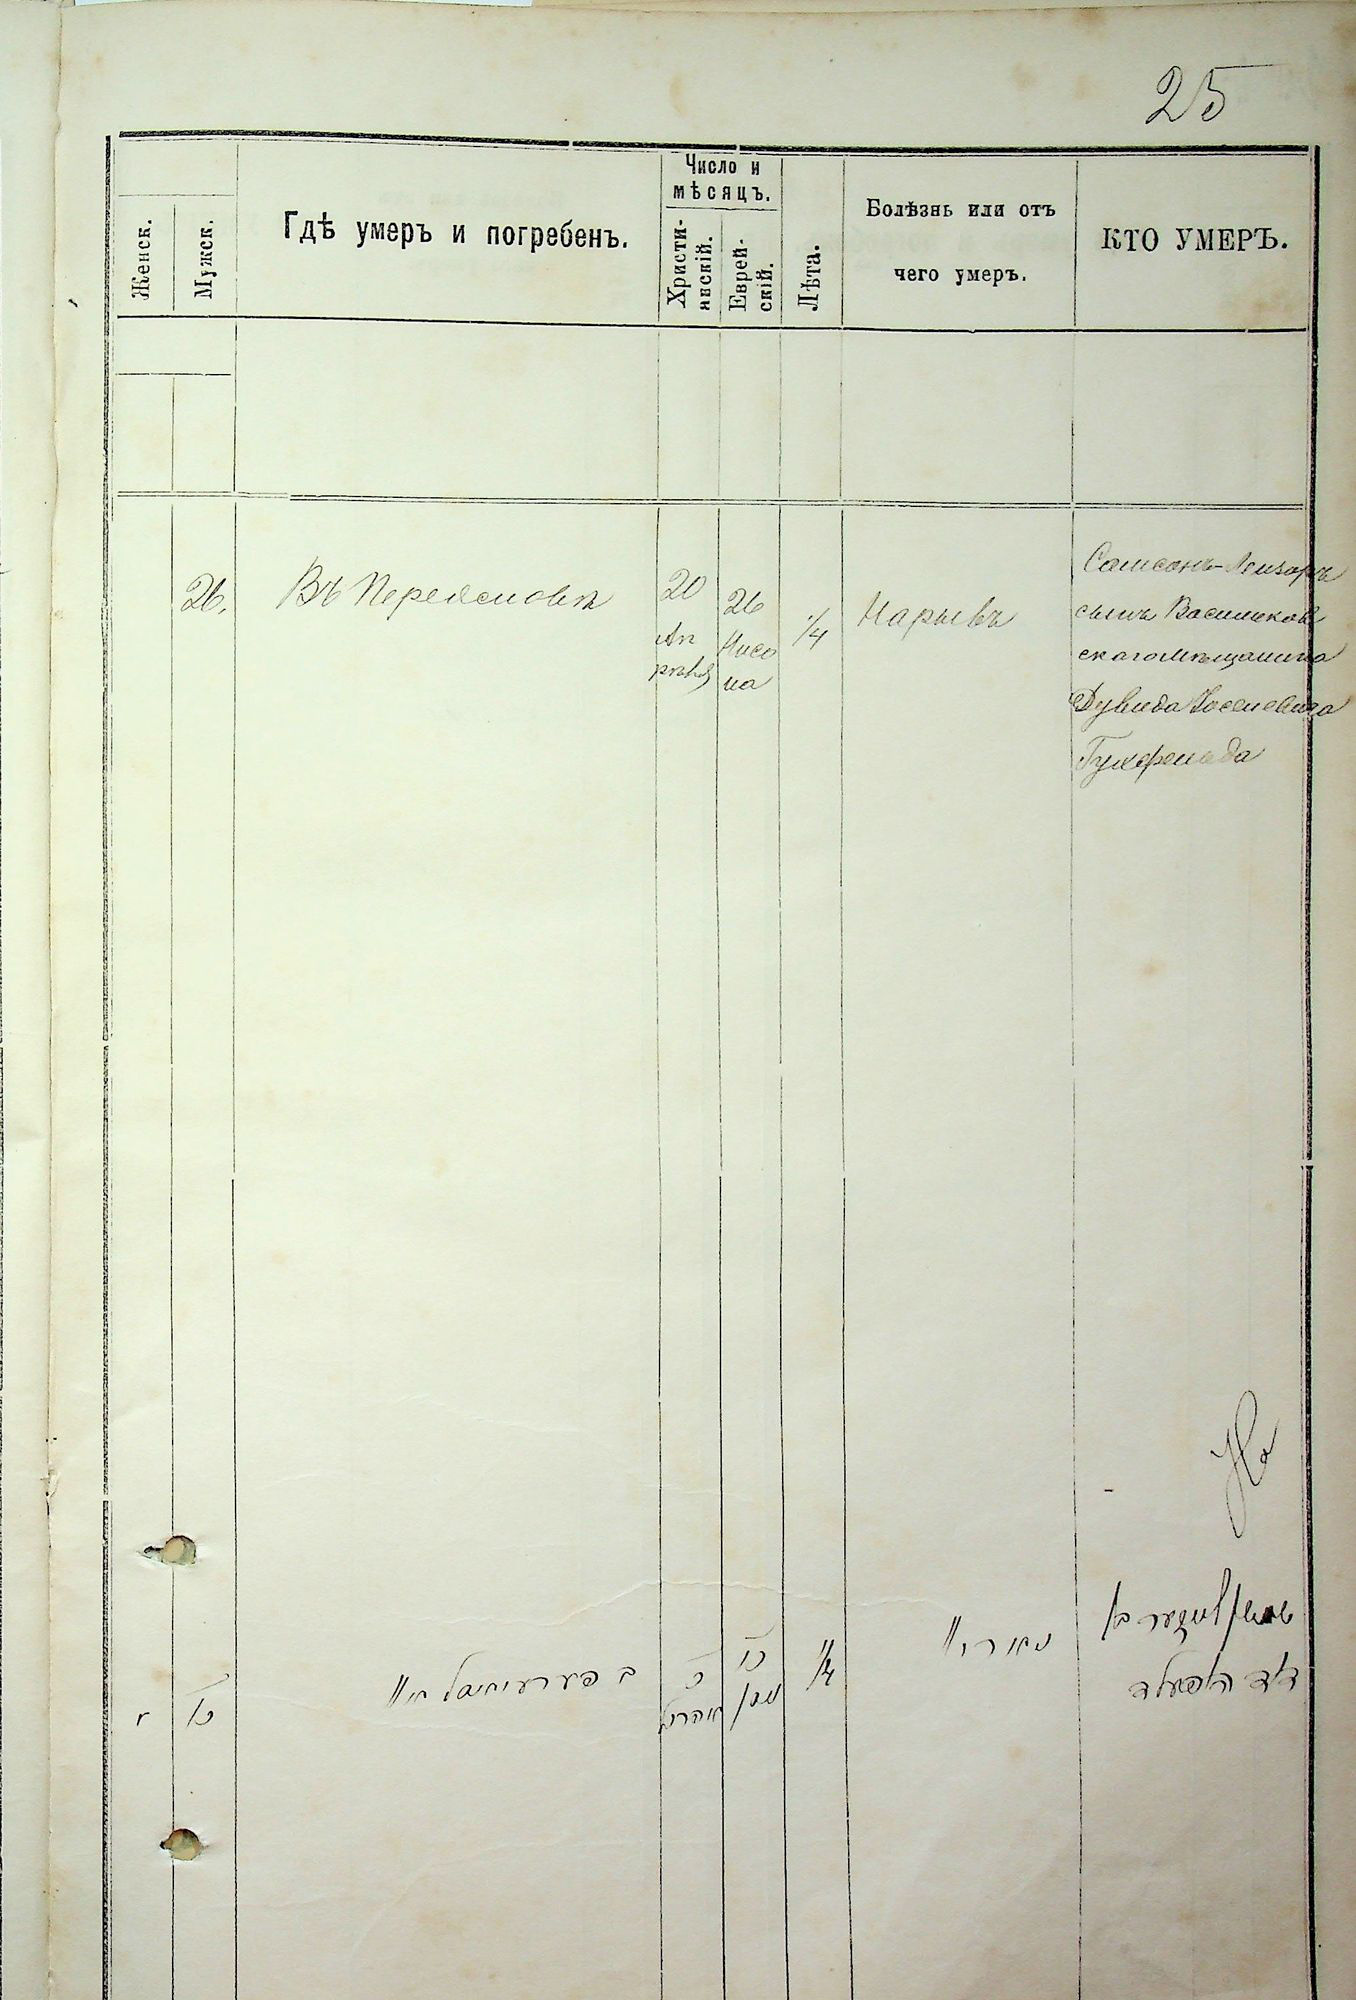 25
Женск.
Мужск.
Гдѣ умеръ и погребенъ.
Число и
мѣсяцъ.
Христи-
анскій.
Еврей-
скій.
Лѣта.
Болѣзнь или отъ
чего умеръ.
КТО УМЕРЪ.
26.
Въ Переяславѣ
20
Ап
рѣля
26
Нисо
на
1/4
Нарывъ
Самсонъ-Лейзоръ
сынъ Васильков
скаго мѣщанина
Дувида Іосел­евича
כו
כ
אפריל
כו
ניסן
1/4
נאריוו
דוד